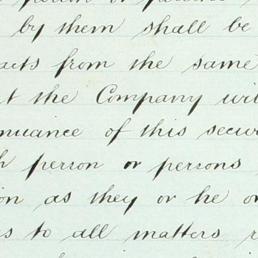 by them shall be
acts from the same
the Company wil
nuance of this secur
person or persons
ion as they or he or
s to all matters